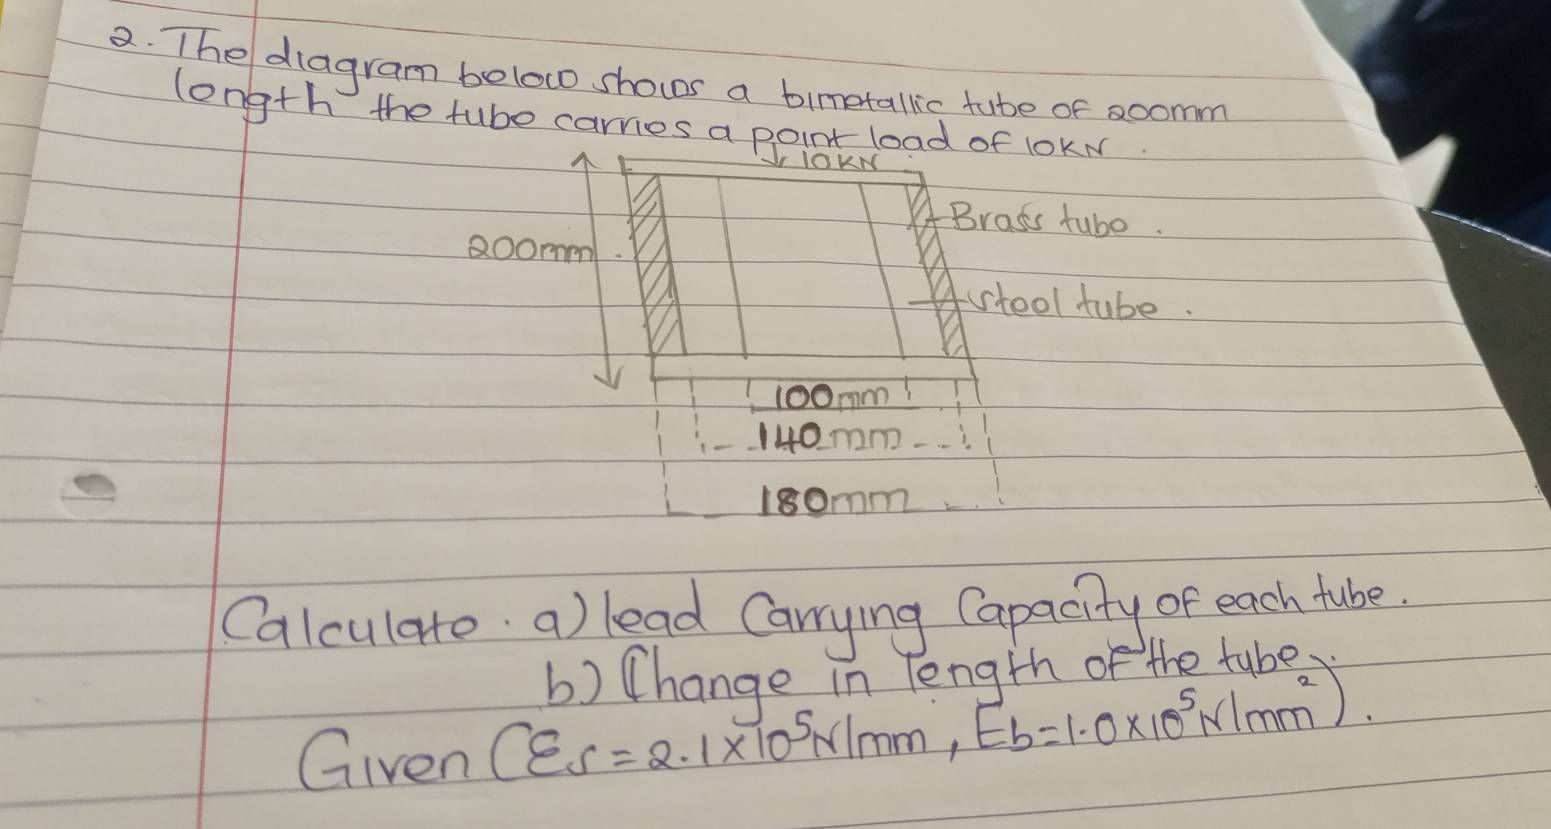 2. The diagram below shows a bimetallic tube of 200mm
length the tube carries a point load of 10KN.
↓10KN
Brass tube.
200mm
steel tube.
100mm
140mm
180mm
Calculate. a) load Carrying Capacity of each tube.
b) Change in length of the tube.
Given (Es = 2.1×10⁵N/mm, Eb=1.0×10⁵N/mm²).